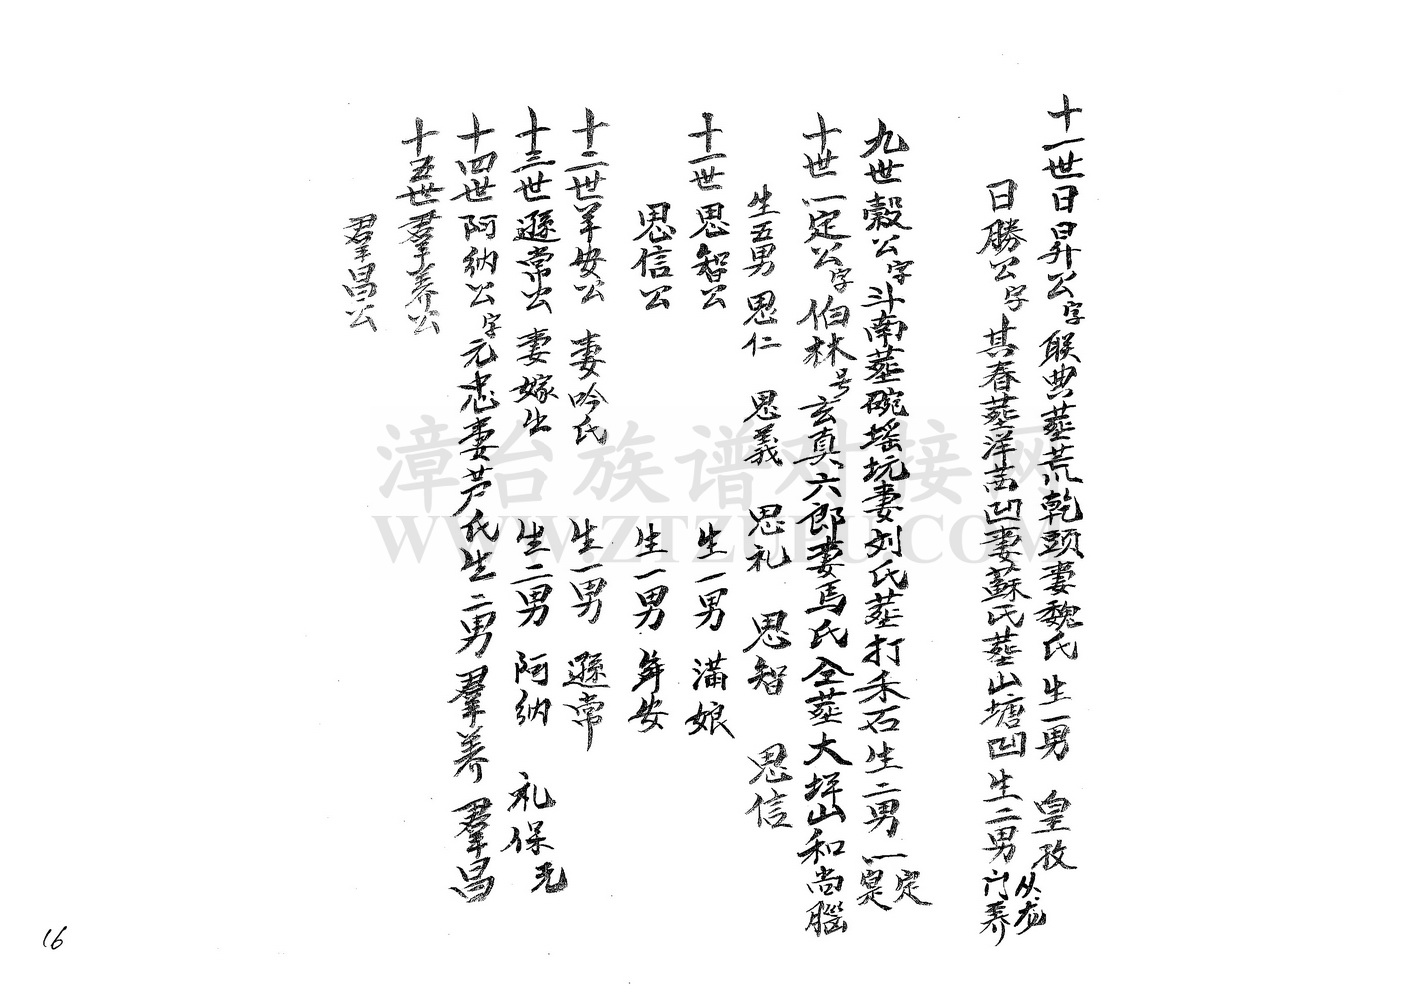 十一世日昇公字联典塟荒乾頭妻魏氏生一男 皇孜
日勝公字其春塟洋茜凹妻蘇氏塟山塘凹生二男 门养
九世穀公字斗南塟碗瑶坑妻刘氏塟打禾石生二男 一定 一寔
十世一定公字伯林号玄真六郎妻馬氏仝塟大坪山和尚腦
生五男 思仁 思義 思礼 思智 思信
十一世思智公 生一男 满娘
思信公 生一男 年安
十二世年安公 妻吟氏 生一男 遜常
十三世遜常公 妻嫁生 生二男 阿纳 礼保 无
十四世阿纳公字元忠妻芦氏生二男 羣养 羣昌
十五世羣养公
羣昌公
漳台族谱对接网
WWW.ZTZUPU.COM
16